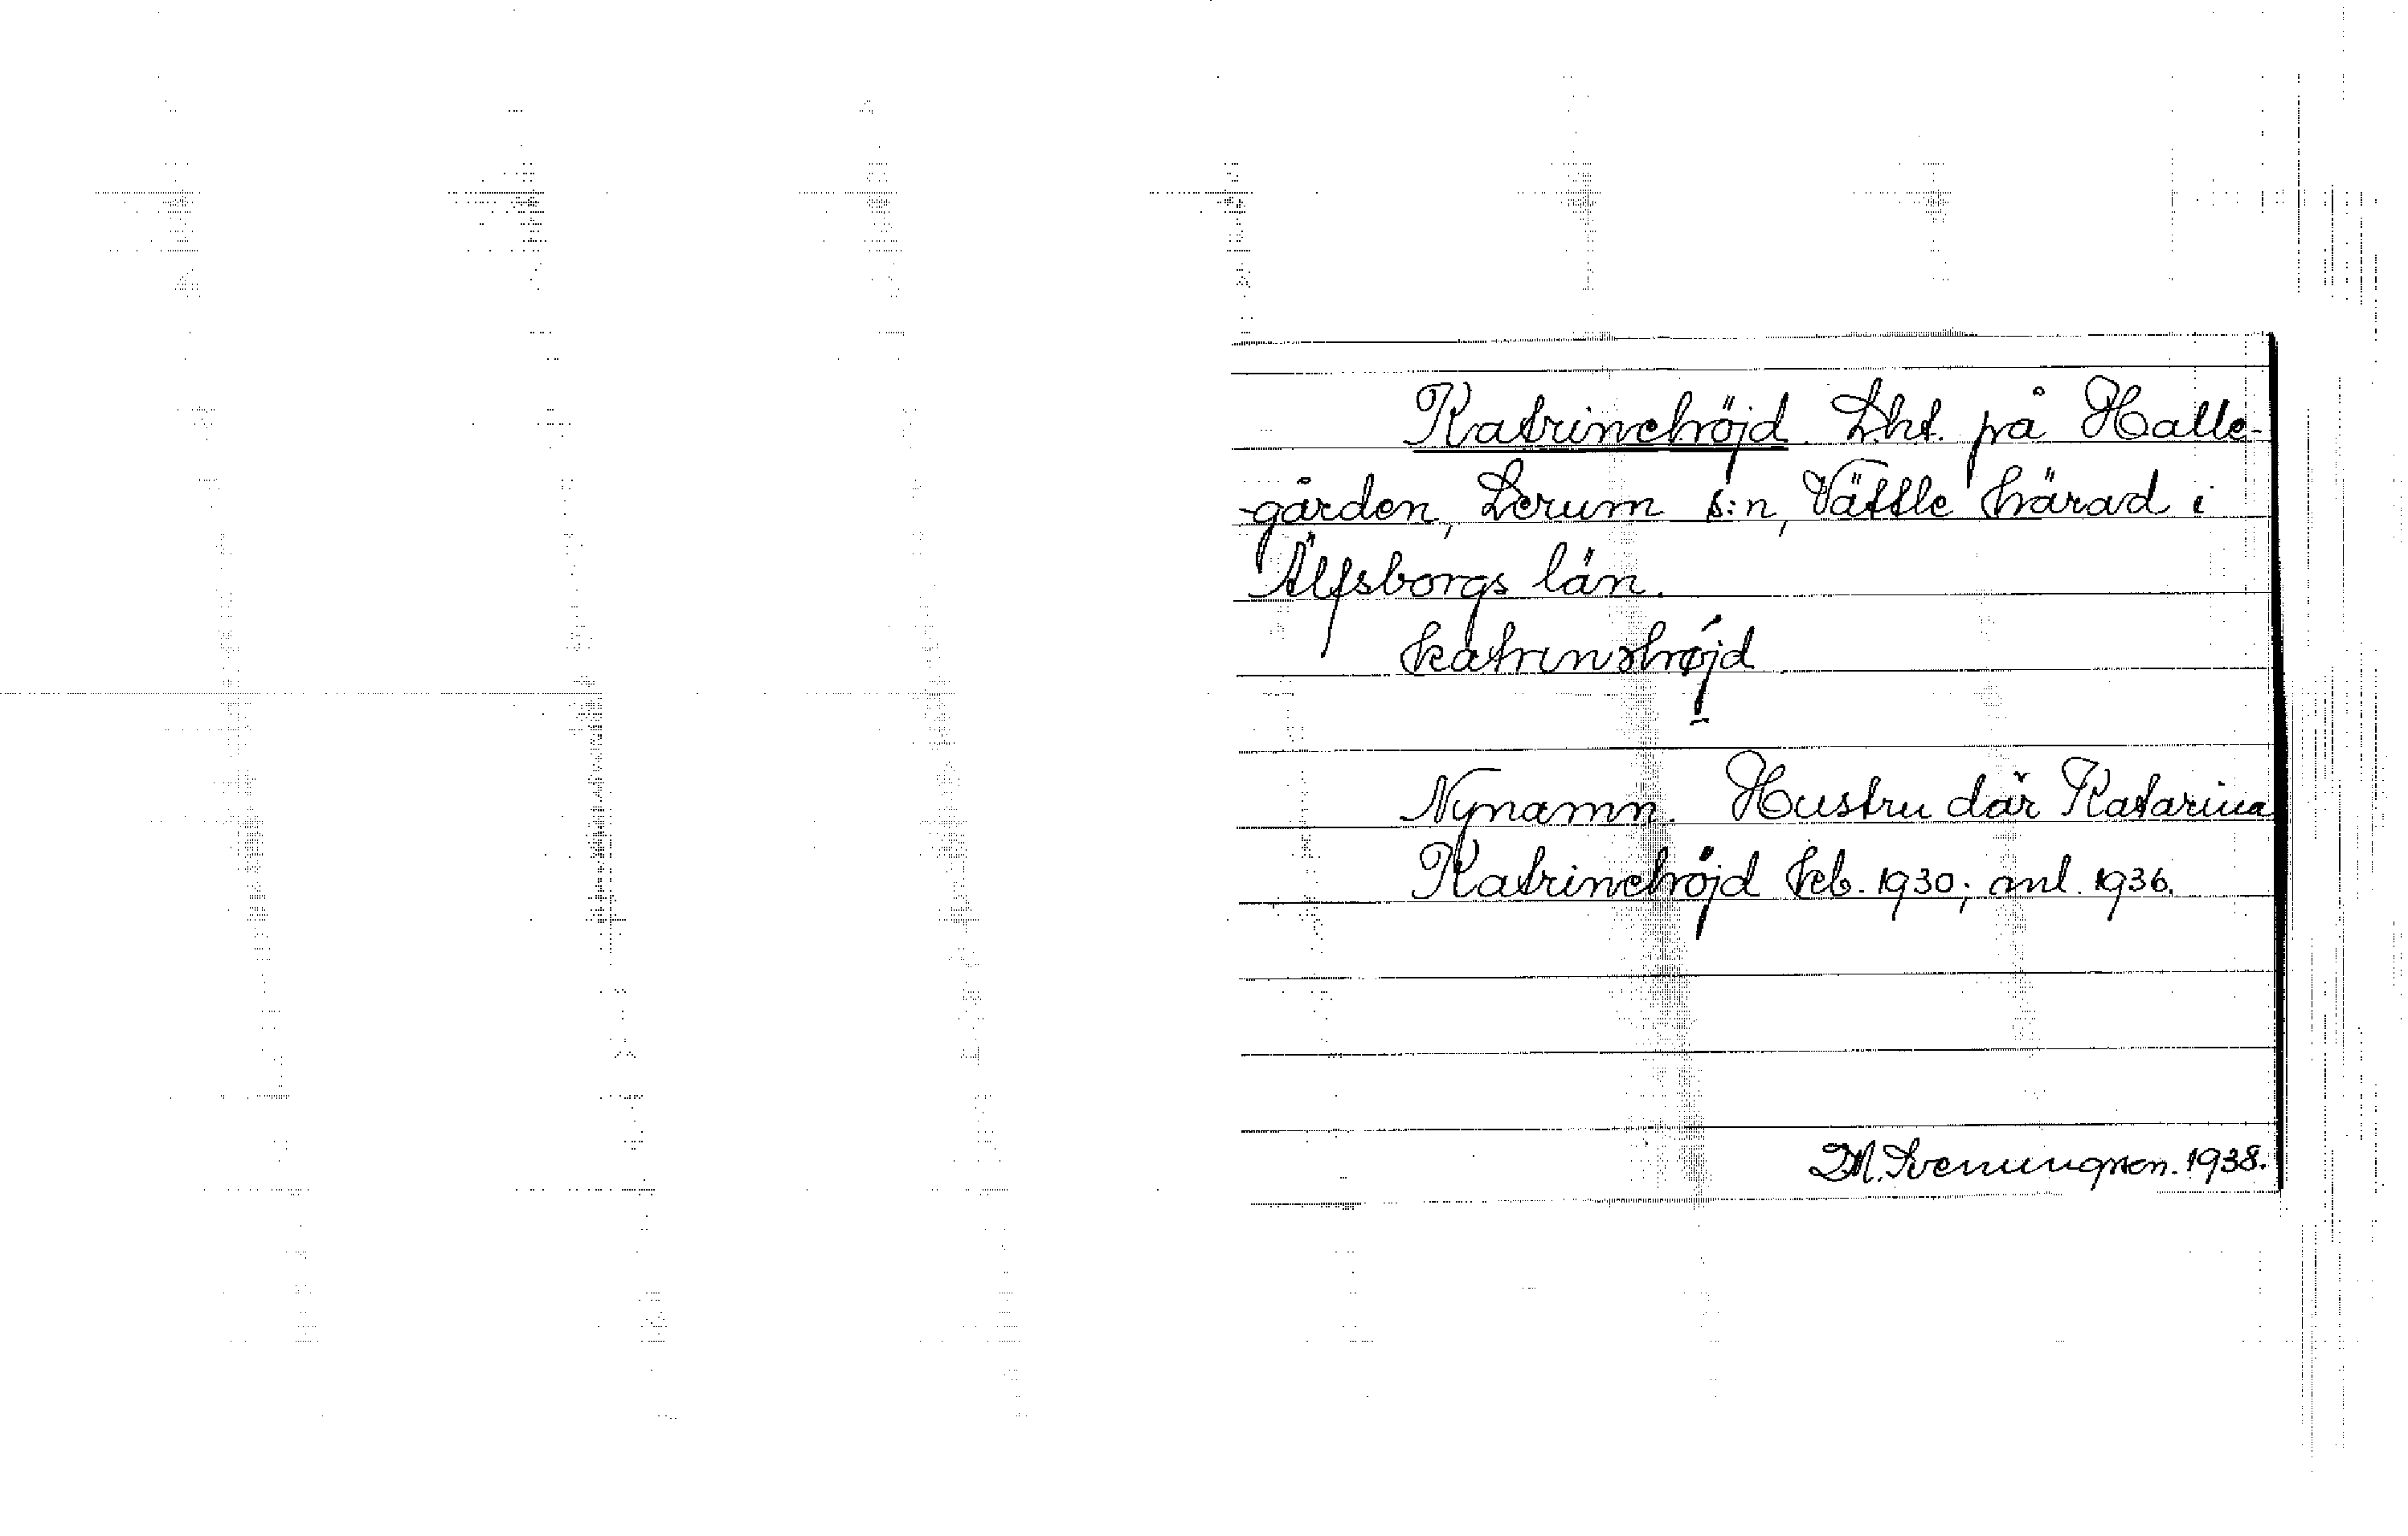 Katrinehöjd. Lht. på Halle-
gården, Lerum s:n, Vättle härad i
Älfsborgs län.
katrinəhøjd
Nynamn. Hustru där Katarina
Katrinehöjd kb. 1930; ml. 1936.
D.M. Svenungsson. 1938.